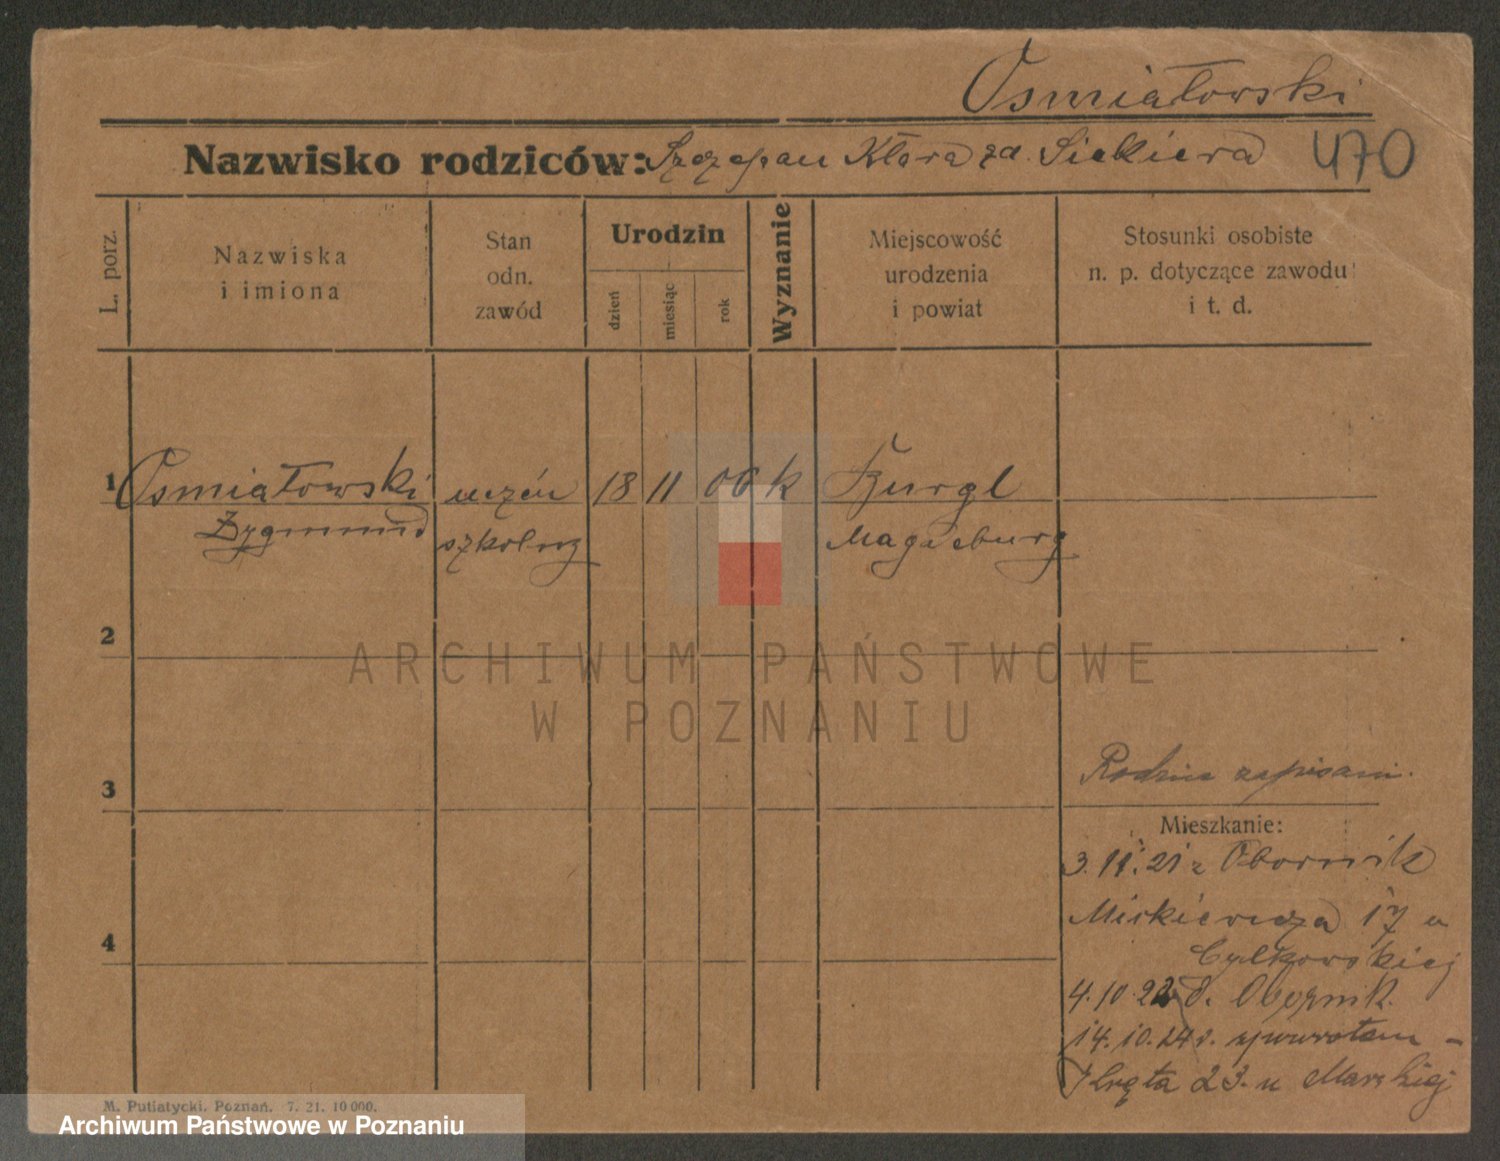 Osmiałowski
Nazwisko rodziców: Szczepan Klara zd. Siekiera 470
L. porz.
Nazwiska
i imiona
Stan
odn.
zawód
Urodzin
dzień
miesiąc
rok
Wyznanie
Miejscowość
urodzenia
i powiat
Stosunki osobiste
n. p. dotyczące zawodu
i t. d.
1 Osmiałowski uczeń 18 11 06 k Burgl
Zygmund szkolny Magdeburg
2
ARCHIWUM PAŃSTWOWE
W POZNANIU
3
Rodzice zapisani.
Mieszkanie:
3. 11. 21 z Obornik
Mickiewicza 17 u
4
4. 10. 22 d. Obornik
14. 10. 24 z. zpowrotem -
23. u
M. Putiatycki, Poznań. 7. 21. 10 000.
Archiwum Państwowe w Poznaniu